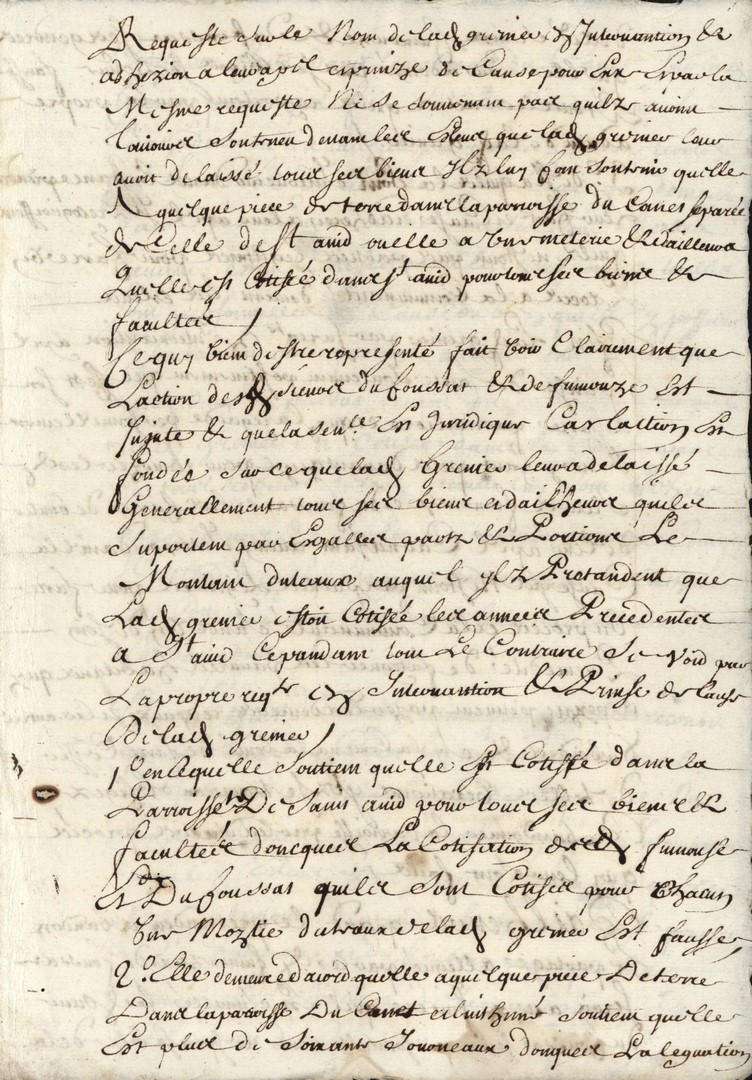 Requeste sur le Nom de lad grenier en Interuantion &
adhezion a leur apel et prinze de Cause pour Eux Et par la
Mesme requeste Ne se souuenant pas quilz auoint
soutenu deuant les que lad grenier leur
auoit delaissé tous ses biens Ilz luy font soutenir quelle
A quelque piece de terre dans la parroisse du Canet separée
de Celle de St auid ou elle a Une meterie & dailleurs
Quelle est Cotisée dans St auid pour tous ses biens &
facultes /
Ce quy bien de stre representé fait Voir Clairement que
Laction desd sieurs du foussat & de fumouze Est
Juste & que la senle Est Juridique Car laction Est
fondée sur ce que lad Grenier leur a delaissé
Generallement tous ses biens et dailheurs quil les
suportent par Esgalles parts & Portions Le
Montant du teaux auquel ylz Pretandent que
Lad grenier estoit Cotisée les années Precedentes
a St auid Cepandant tout Le Contraire Se Void par
La propre reqte en Interuantion & Prinse de Cause
De lad grenier /
1° en laquelle soutient quelle Est Cotisée dans la
Parroisse De Saint auid pour tous ses biens &
facultées doncques La Cotisation desd fumouse
Et Du foussat quil se sont Cotises pour Chacun
Une Moytie du teaux de lad grenier Est fausse
2° Elle demeure dacord quelle a quelque piece De terre
Dans la paroisse Du Canet et linthimé soutient quelle
Est plus de soixante Journeaux donques La leguation